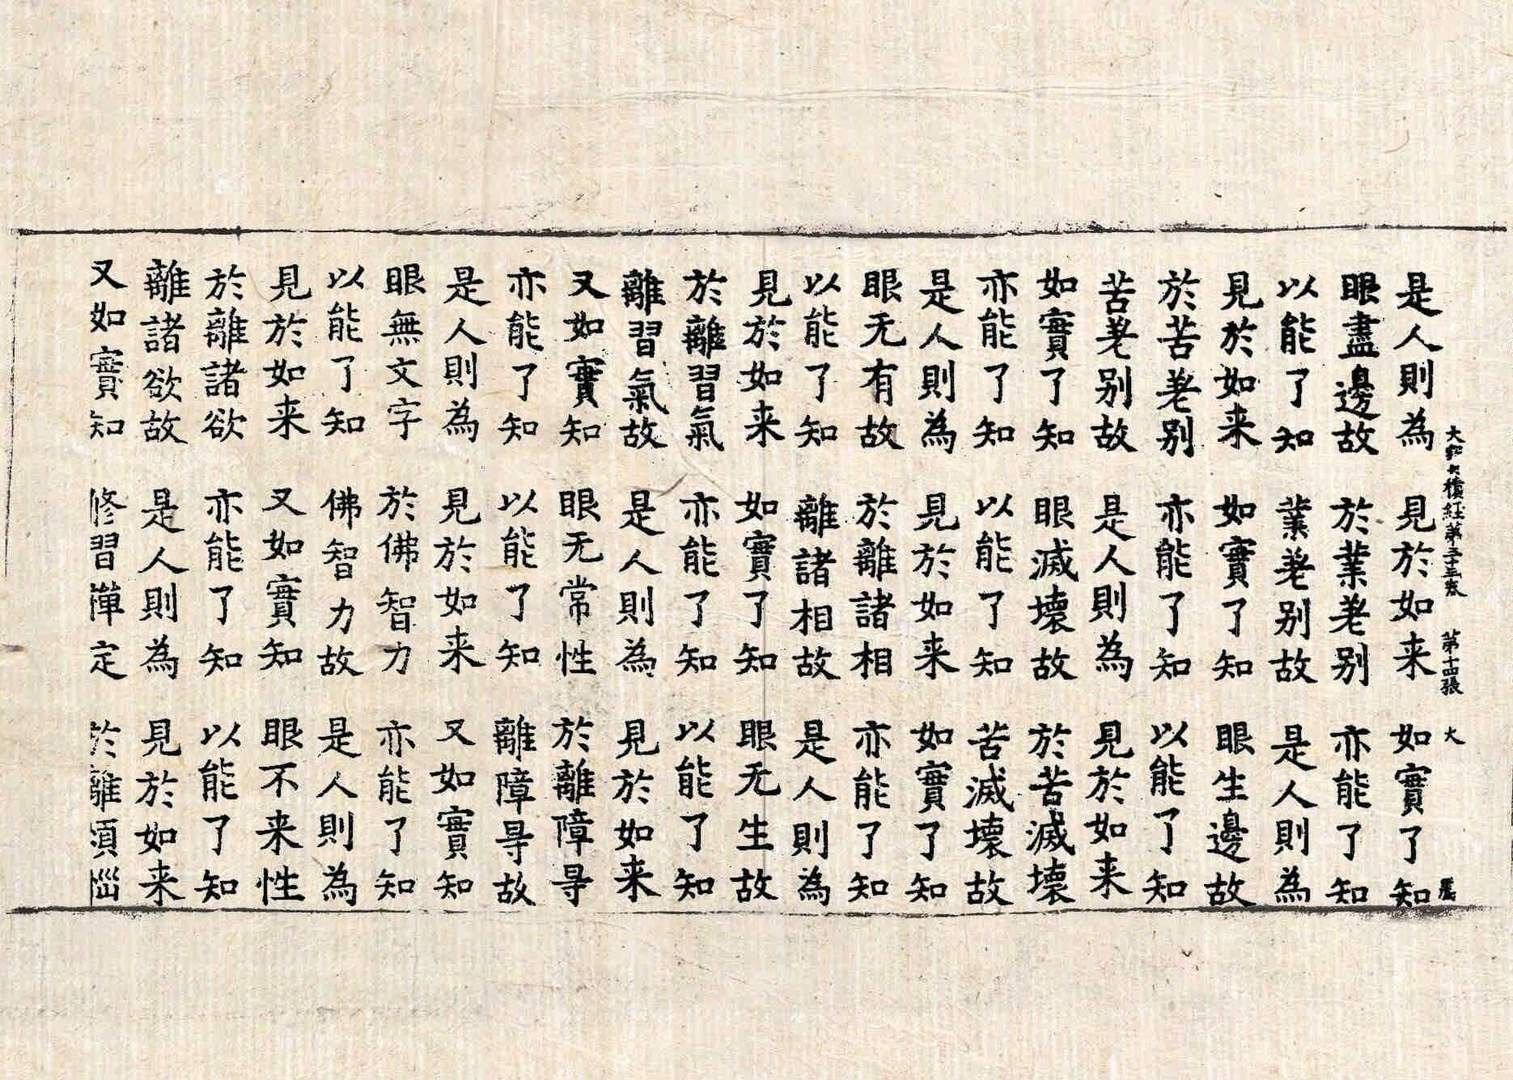 積経第三十五卷 第十四張 大
是人則為 見於如来 如實了知
眼盡邊故 於業差别 亦能了知
以能了知 業差别故 是人則為
見於如来 如實了知 眼生邊故
於苦差别 亦能了知 以能了知
苦差别故 是人則為 見於如来
如實了知 眼滅壞故 於苦滅壞
亦能了知 以能了知 苦滅壞故
是人則為 見於如来 如實了知
眼无有故 於離諸相 亦能了知
以能了知 離諸相故 是人則為
見於如来 如實了知 眼无生故
於離習氣 亦能了知 以能了知
離習氣故 是人則為 見於如来
又如實知 眼无常性 於離障㝵
亦能了知 以能了知 離障㝵故
是人則為 見於如来 又如實知
眼無文字 於佛智力 亦能了知
以能了知 佛智力故 是人則為
見於如来 又如實知 眼不来性
於離諸欲 亦能了知 以能了知
離諸欲故 是人則為 見於如来
又如實知 修習禪定 於離煩惱